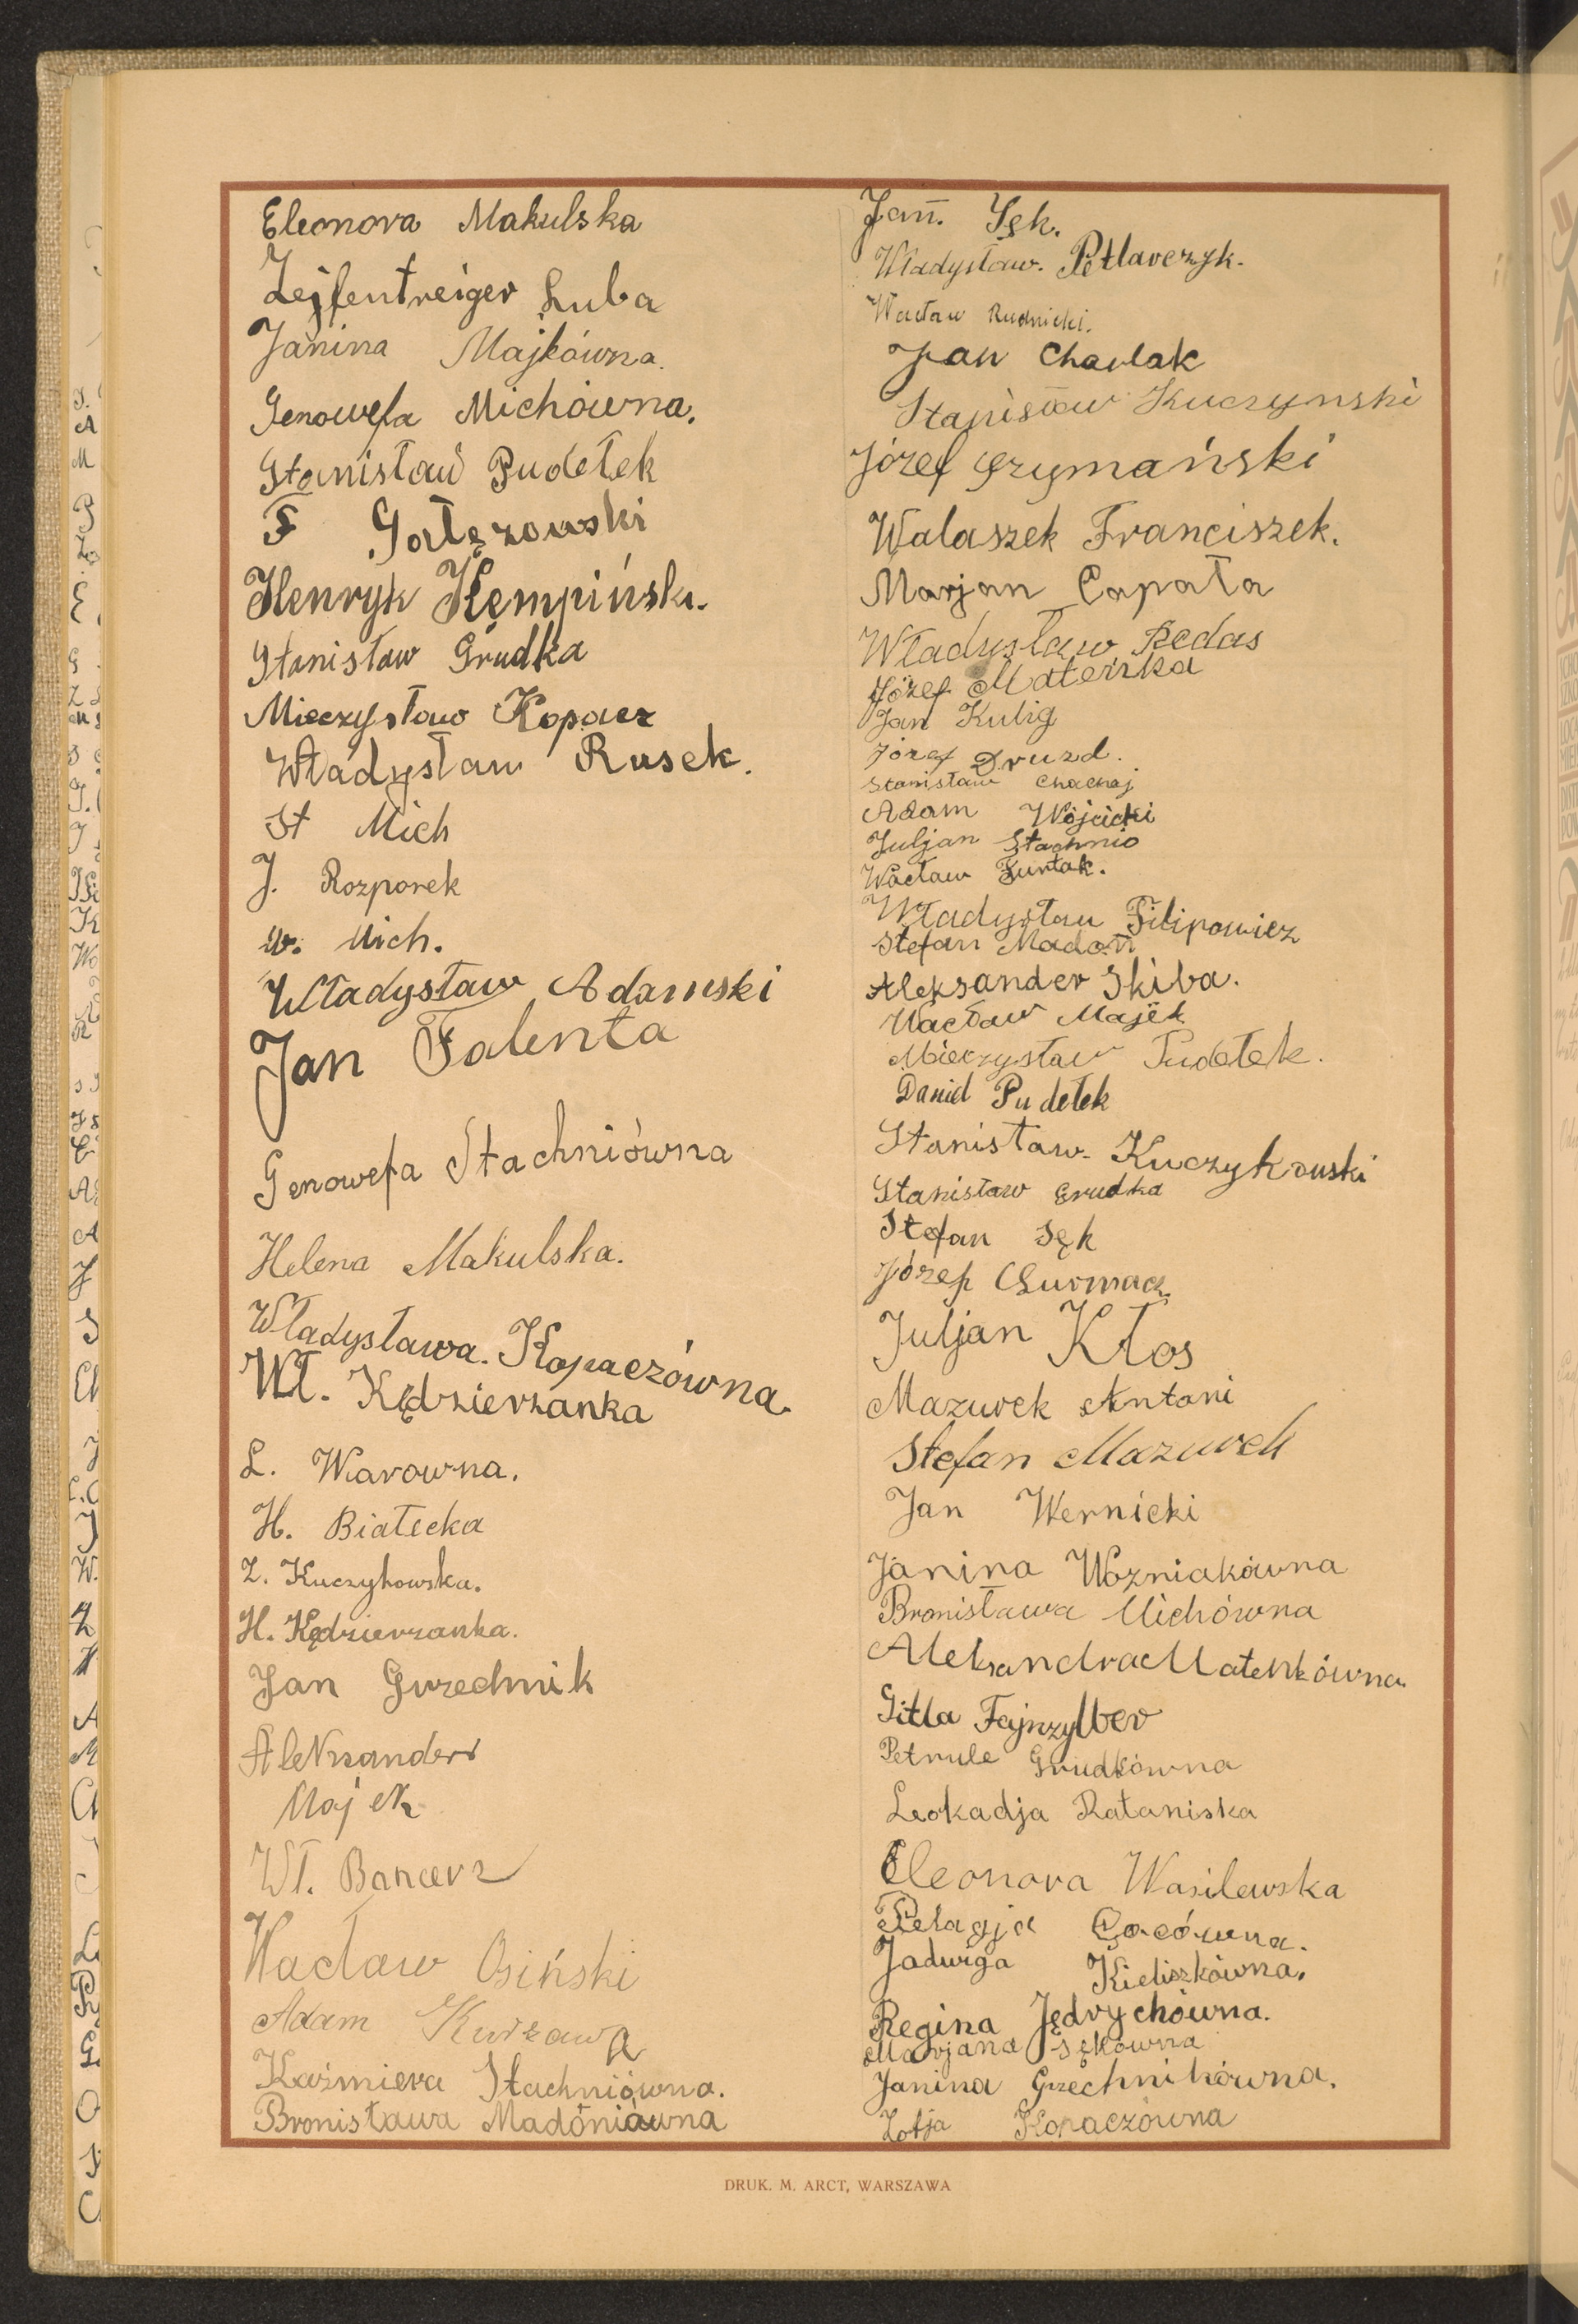 Eleonora Makulska
Lejfentreiger Luba
Janina Majkówna.
Genowefa Michówna.
Stanisław Pudełek
F Gałęzowski
Henryk Kempiński.
Stanisław Grudka
Mieczysław Kopacz
Władysław Rusek.
St Mich
J. Rozporek
W. Mich.
Władysław Adamski
Jan Falenta
Genowefa Stachniówna
Helena Makulska.
Władysława. Kopaczówna
Wł. Kędzierzanka
L. Warowna.
H. Białecka
Z. Kuczykowska.
H. Kędzierzanka.
Jan Gwrednik
Aleksander
Majek
Wł. Bancerz
Wacław Osiński
Adam Kurzawa
Kaźmiera Stachniówna.
Bronisława Madoniówna
Jan. Sęk.
Władysław. Petlarczyk.
Wacław Rudnicki.
Jan Charlak
Stanisław Kuczynski
Józef Szymański
Walaszek Franciszek.
Marjan Capała
Władysław Redas
Józef Mateńka
Jan Kulig
Józef Druzd.
Stanisław Chachaj
Adam Wójcicki
Juljan Stachnio
Wacław Furtak.
Władysław Filipowicz
Stefan Madoń
Aleksander Skiba.
Wacław Majek
Mieczysław Pudełek.
Daniel Pudełek
Stanisław. Kuczykowski
Stanisław Grudka
Stefan Sęk
Józef Churmacz
Juljan Kłos
Mazurek Antoni
Stefan Mazurek
Jan Wernicki
Janina Wozniakówna
Bronisława Michówna
Aleksandra Matenkówna.
Gitla Fajnzylber
Petrule Grudkówna
Leokadja Rataniska
Eleonora Wasilewska
Pelagja Gacówna.
Jadwiga Kieliszkówna.
Regina Jędrychówna.
Marjana Sękówna
Janina Grzechnikówna.
Zofja Kopaczówna
DRUK. M. ARCT, WARSZAWA